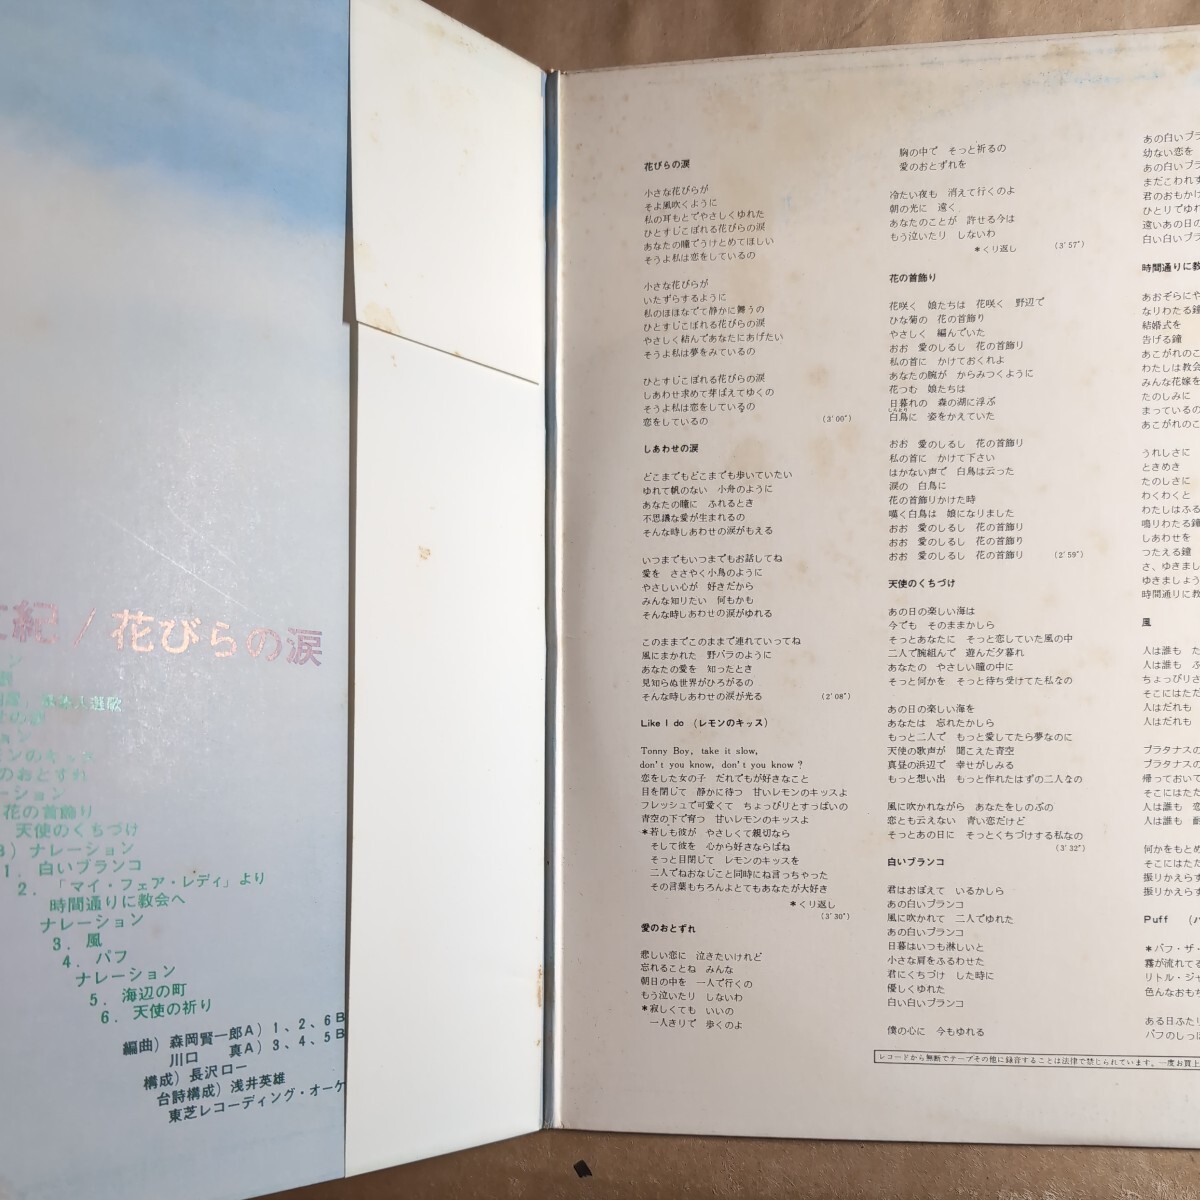 紀／花びらの涙
ナレーション
花の首飾り
天使のくちづけ
B）ナレーション
1．白いブランコ
2．「マイ・フェア・レディ」より
時間通りに教会へ
ナレーション
3．風
4．パフ
ナレーション
5．海辺の町
6．天使の祈り
編曲）森岡賢一郎A）1、2、6B
川口　真A）3、4、5B
構成）長沢ロー
台詩構成）浅井英雄
東芝レコーディング・オーケ
花びらの涙
小さな花びらが
そよ風吹くように
私の耳もとでやさしくゆれた
ひとすじこぼれる花びらの涙
あなたの瞳でうけとめてほしい
そうよ私は恋をしているの
小さな花びらが
いたずらするように
私のほほなでて静かに舞うの
ひとすじこぼれる花びらの涙
やさしく結んであなたにあげたい
そうよ私は夢をみているの
ひとすじこぼれる花びらの涙
しあわせ求めて芽ばえてゆくの
そうよ私は恋をしているの
恋をしているの　(3'00")
しあわせの涙
どこまでもどこまでも歩いていたい
ゆれて帆のない　小舟のように
あなたの瞳に　ふれるとき
不思議な愛が生まれるの
そんな時しあわせの涙がもえる
いつまでもいつまでもお話してね
愛を　ささやく小鳥のように
やさしい心が　好きだから
みんな知りたい　何もかも
そんな時しあわせの涙がゆれる
このままでこのままで連れていってね
風にまかれた　野バラのように
あなたの愛を　知ったとき
見知らぬ世界がひろがるの
そんな時しあわせの涙が光る　(2'08")
Like I do　(レモンのキッス)
Tonny Boy, take it slow,
don't you know, don't you know ?
恋をした女の子　だれでもが好きなこと
目を閉じて　静かに待つ　甘いレモンのキッスよ
フレッシュで可愛くて　ちょっぴりとすっぱいの
青空の下で育つ　甘いレモンのキッスよ
＊若しも彼が　やさしくて親切なら
そして彼を　心から好きならばね
そっと目閉じて　レモンのキッスを
二人でねおなじこと同時にね言っちゃった
その言葉もちろんよとてもあなたが大好き
＊くり返し
(3'30")
愛のおとずれ
悲しい恋に　泣きたいけれど
忘れることね　みんな
朝日の中を　一人で行くの
もう泣いたり　しないわ
＊寂しくても　いいの
一人きりで　歩くのよ
胸の中で　そっと祈るの
愛のおとずれを
冷たい夜も　消えて行くのよ
朝の光に　遠く
あなたのことが　許せる今は
もう泣いたり　しないわ
＊くり返し　(3'57")
花の首飾り
花咲く　娘たちは　花咲く　野辺で
ひな菊の　花の首飾り
やさしく　編んでいた
おお　愛のしるし　花の首飾り
私の首に　かけておくれよ
あなたの腕が　からみつくように
花つむ　娘たちは
日暮れの　森の湖に浮ぶ
白鳥に　姿をかえていた
おお　愛のしるし　花の首飾り
私の首に　かけて下さい
はかない声で　白鳥は云った
涙の　白鳥に
花の首飾りかけた時
嘆く白鳥は　娘になりました
おお　愛のしるし　花の首飾り
おお　愛のしるし　花の首飾り
おお　愛のしるし　花の首飾り　(2'59")
天使のくちづけ
あの日の楽しい海は
今でも　そのままかしら
そっとあなたに　そっと恋していた風の中
二人で腕組んで　遊んだ夕暮れ
あなたの　やさしい瞳の中に
そっと何かを　そっと待ち受けてた私なの
あの日の楽しい海を
あなたは　忘れたかしら
もっと二人で　もっと愛してたら夢なのに
天使の歌声が　聞こえた青空
真昼の浜辺で　幸せがしみる
もっと想い出　もっと作れたはずの二人なの
風に吹かれながら　あなたをしのぶの
恋とも云えない　青い恋だけど
そっとあの日に　そっとくちづけする私なの
(3'32")
白いブランコ
君はおぼえて　いるかしら
あの白いブランコ
風に吹かれて　二人でゆれた
あの白いブランコ
日暮はいつも淋しいと
小さな肩をふるわせた
君にくちづけ　した時に
優しくゆれた
白い白いブランコ
僕の心に　今もゆれる
あの白いブラ
幼ない恋を
あの白いブラ
まだこわれず
君のおもかげ
ひとりでゆれ
遠いあの日の
白い白いブラ
時間通りに教
あおぞらにや
なりわたる鐘
結婚式を
告げる鐘
あこがれのこ
わたしは教会
みんな花嫁を
たのしみに
まっているの
あこがれのこ
うれしさに
ときめき
たのしさに
わくわくと
わたしはふる
鳴りわたる鐘
しあわせを
つたえる鐘
さ、ゆきまし
ゆきましょう
時間通りに教
風
人は誰も　た
人は誰も　ふ
ちょっぴりさ
そこにはただ
人はだれも
人はだれも
プラタナスの
プラタナスの
帰っておいで
そこにはただ
人は誰も　恋
人は誰も　耐
何かをもとめ
そこにはただ
振りかえらず
振りかえらず
Puff　(パ
＊パフ・ザ・
霧が流れてる
リトル・ジャ
色んなおもち
ある日ふたり
パフのしっぽ
レコードから無断でテープその他に録音することは法律で禁じられています。一度お買上